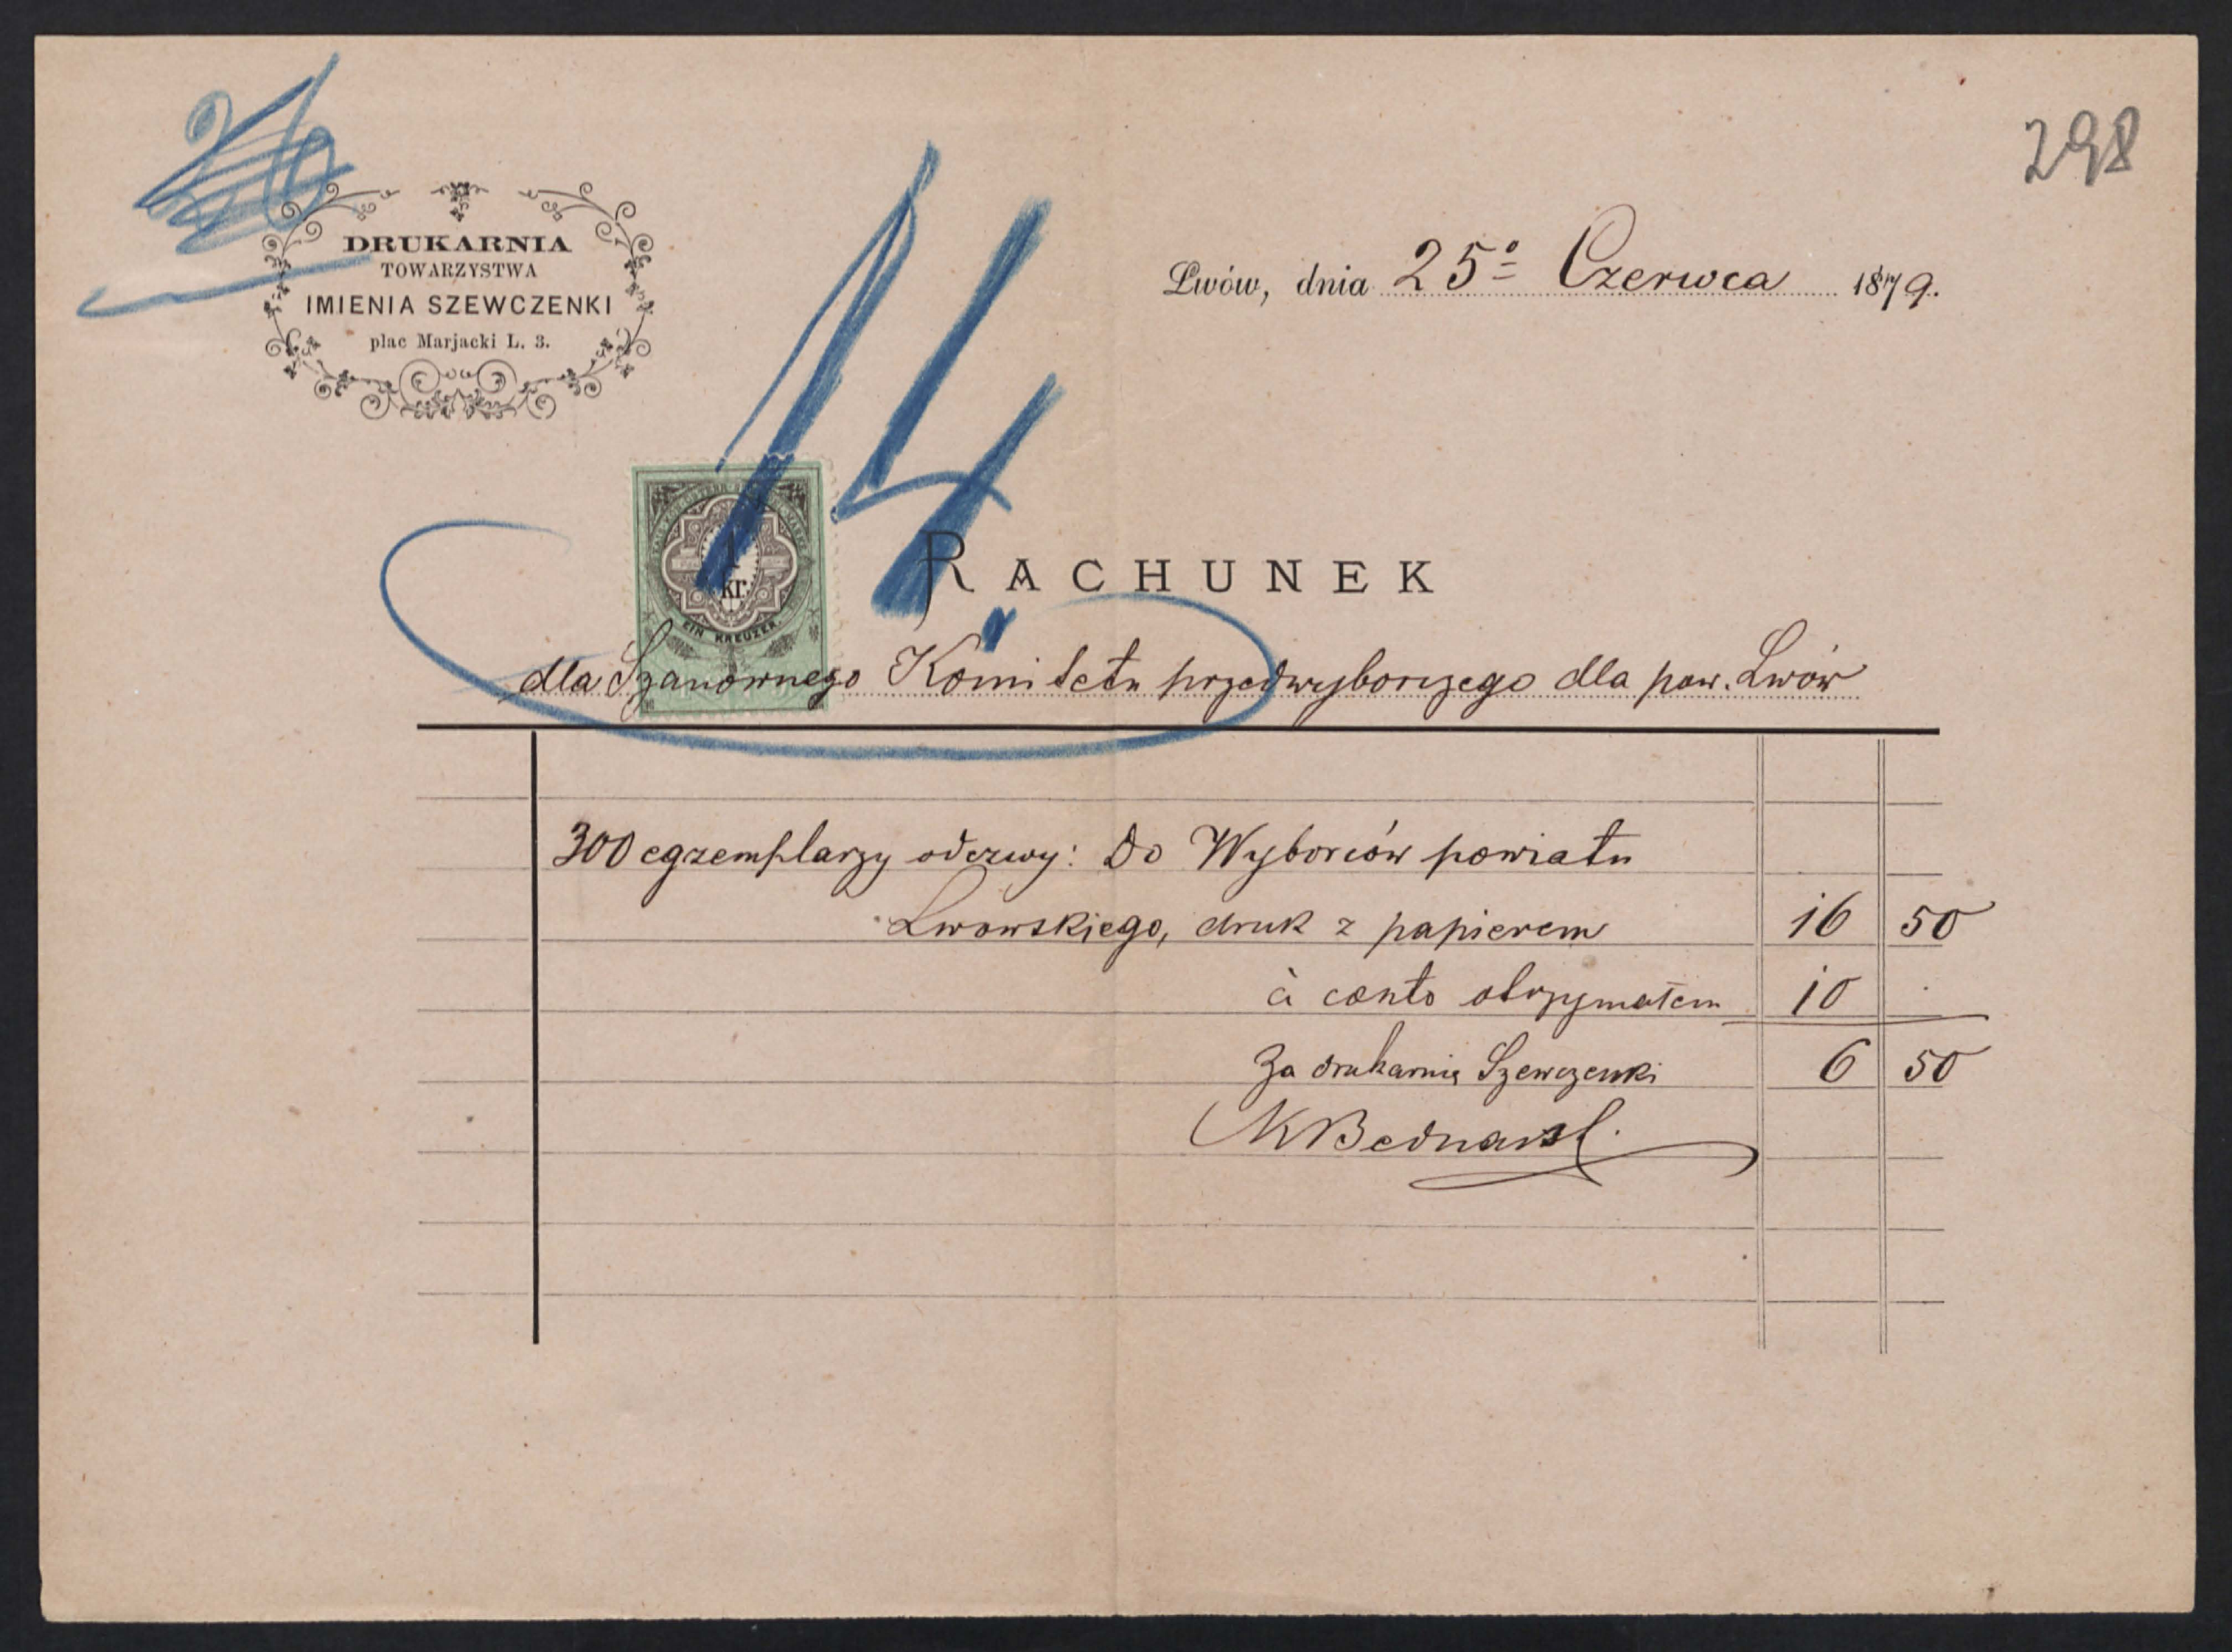 298
DRUKARNIA
TOWARZYSTWA
IMIENIA SZEWCZENKI
plac Marjacki L. 3.
Lwów, dnia 25º Czerwca 1879.
14
1
kr.
EIN KREUZER.
RACHUNEK
dla Szanownego Komitetu przedwyborczego dla pow. Lwów
300 egzemplarzy odezwy: Do Wyborców powiatu
Lwowskiego, druk z papierem 16 50
à conto otrzymałem 10 .
Za drukarnię Szewczenki 6 50
KBednarsk.